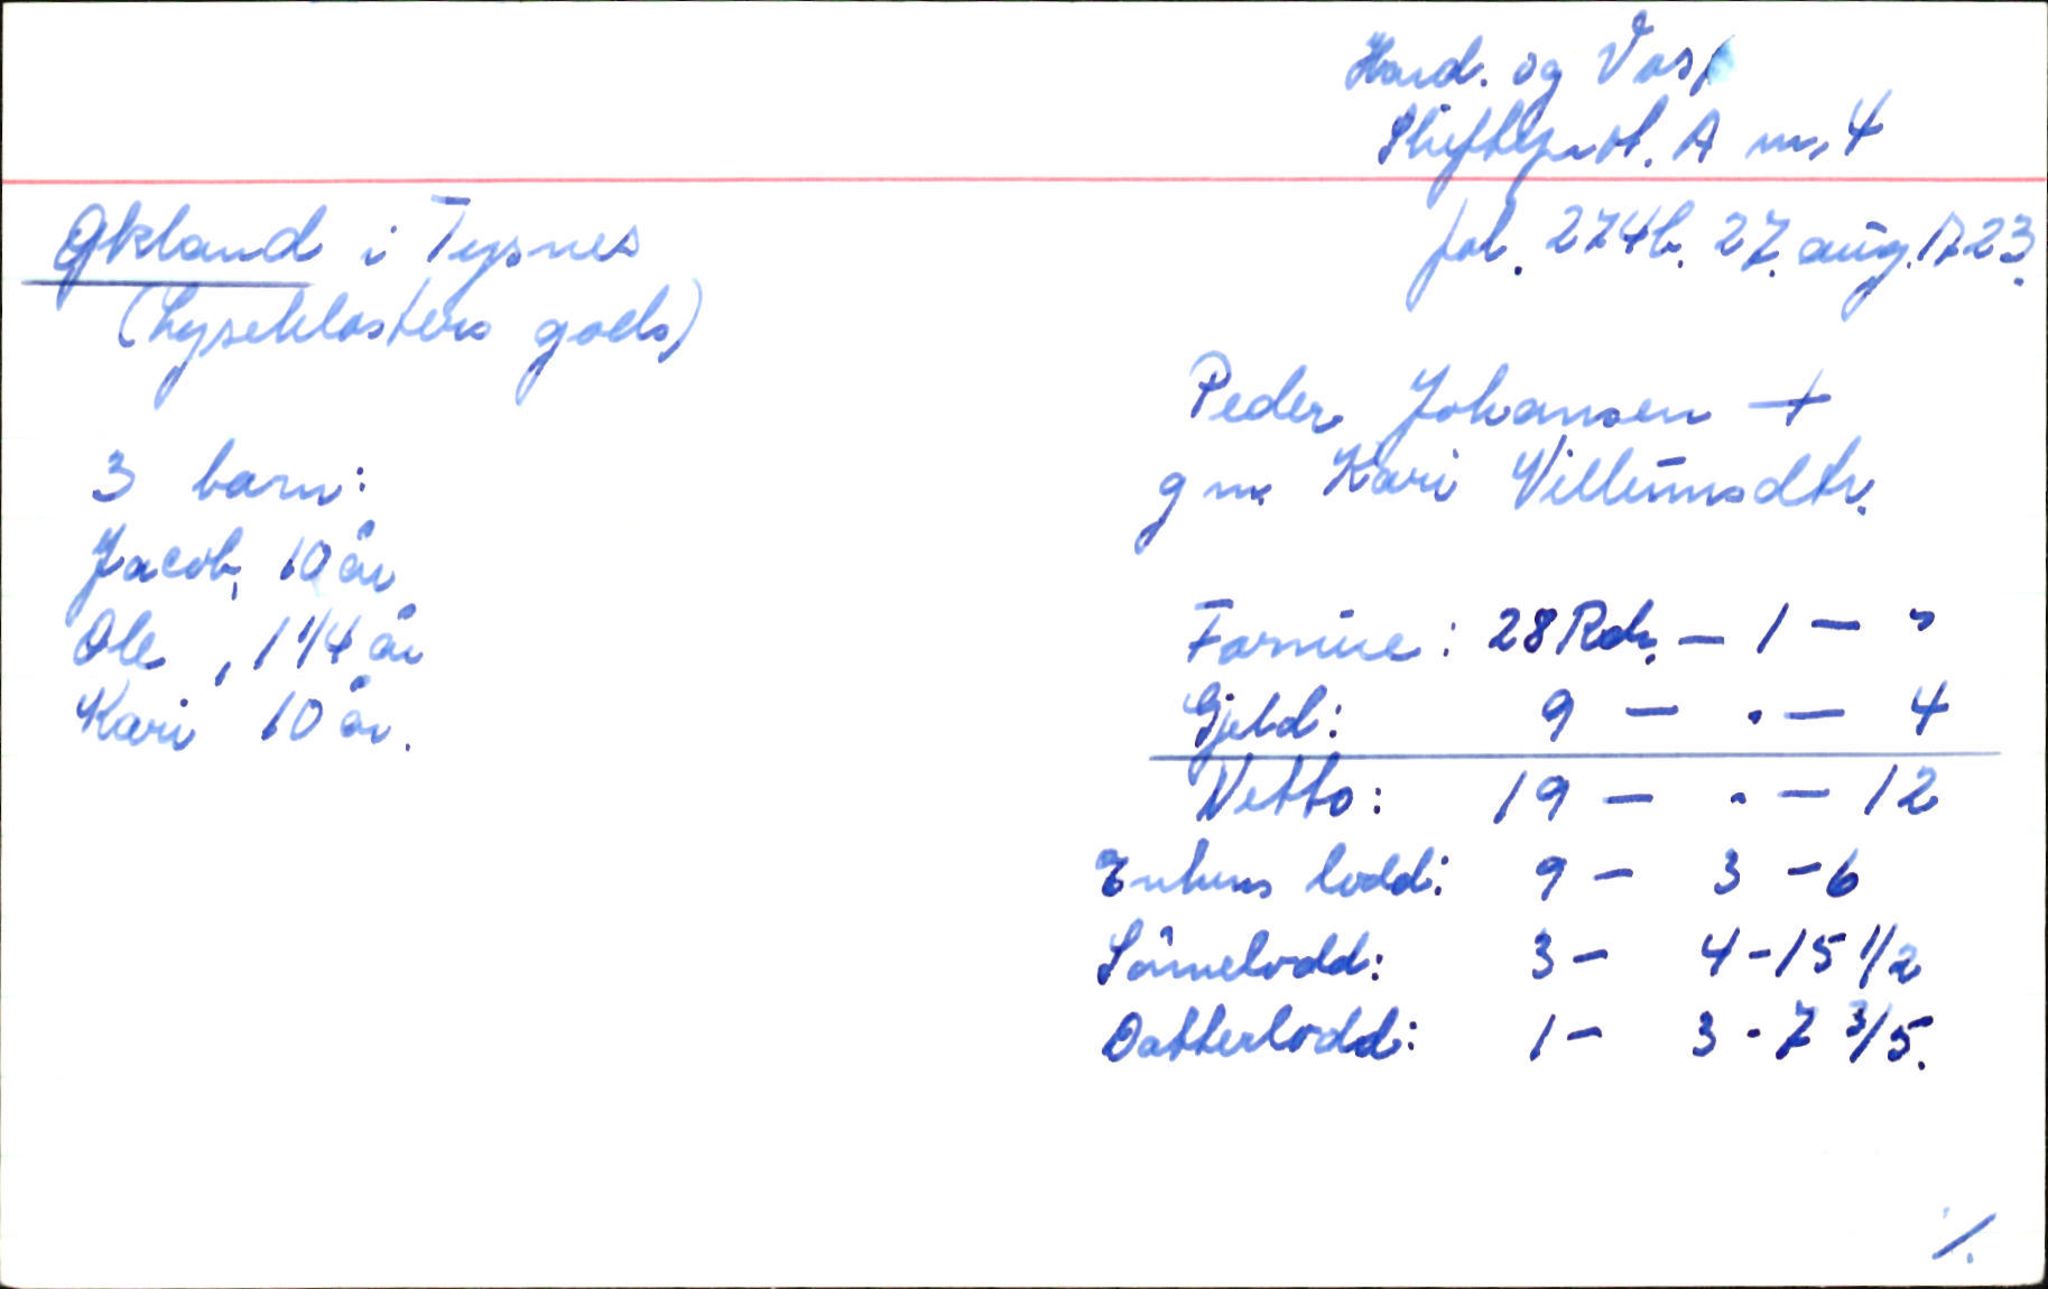 Hard. og Voss
Skifteprot. A nr. 4
fol. 274b. 27. aug. 1723.
Økland i Tysnes
(Lyseklosters gods)
Peder Johansen +
g m. Kari Villumsdtr.
3 barn:
Jacob, 10 år
Ole, 1 1/4 år
Kari 10 år.
Formue: 28 Rdr. - 1 - "
Gjeld: 9 - . - 4
Netto: 19 - . - 12
Enkens lodd: 9 - 3 - 6
Sönnelodd: 3 - 4 - 15 1/2
Datterlodd: 1 - 3 - 7 3/5.